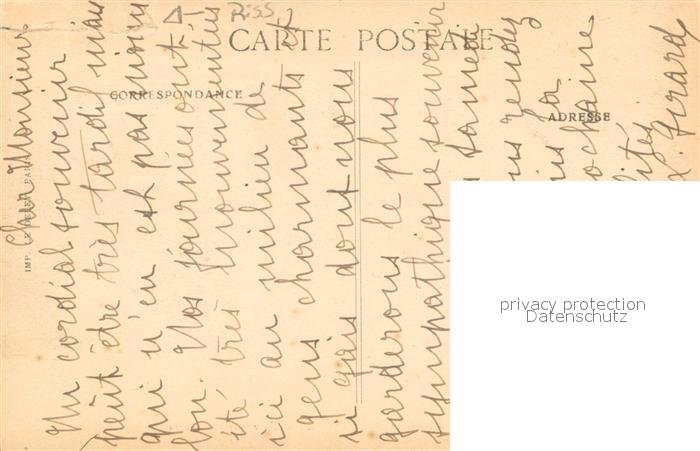 Riss
CARTE POSTALE
CORRESPONDANCE
ADRESSE
Cher Monsieur
Un cordial souvenir
peut être très tardif mais
qui n'en est pas moins
bon. Nos journées ont
été très mouvementées
ici au milieu de
gens charmants et
si gais dont nous
garderons le plus
sympathique souvenir
samedi
rendez
la
prochaine
Girard
privacy protection
Datenschutz